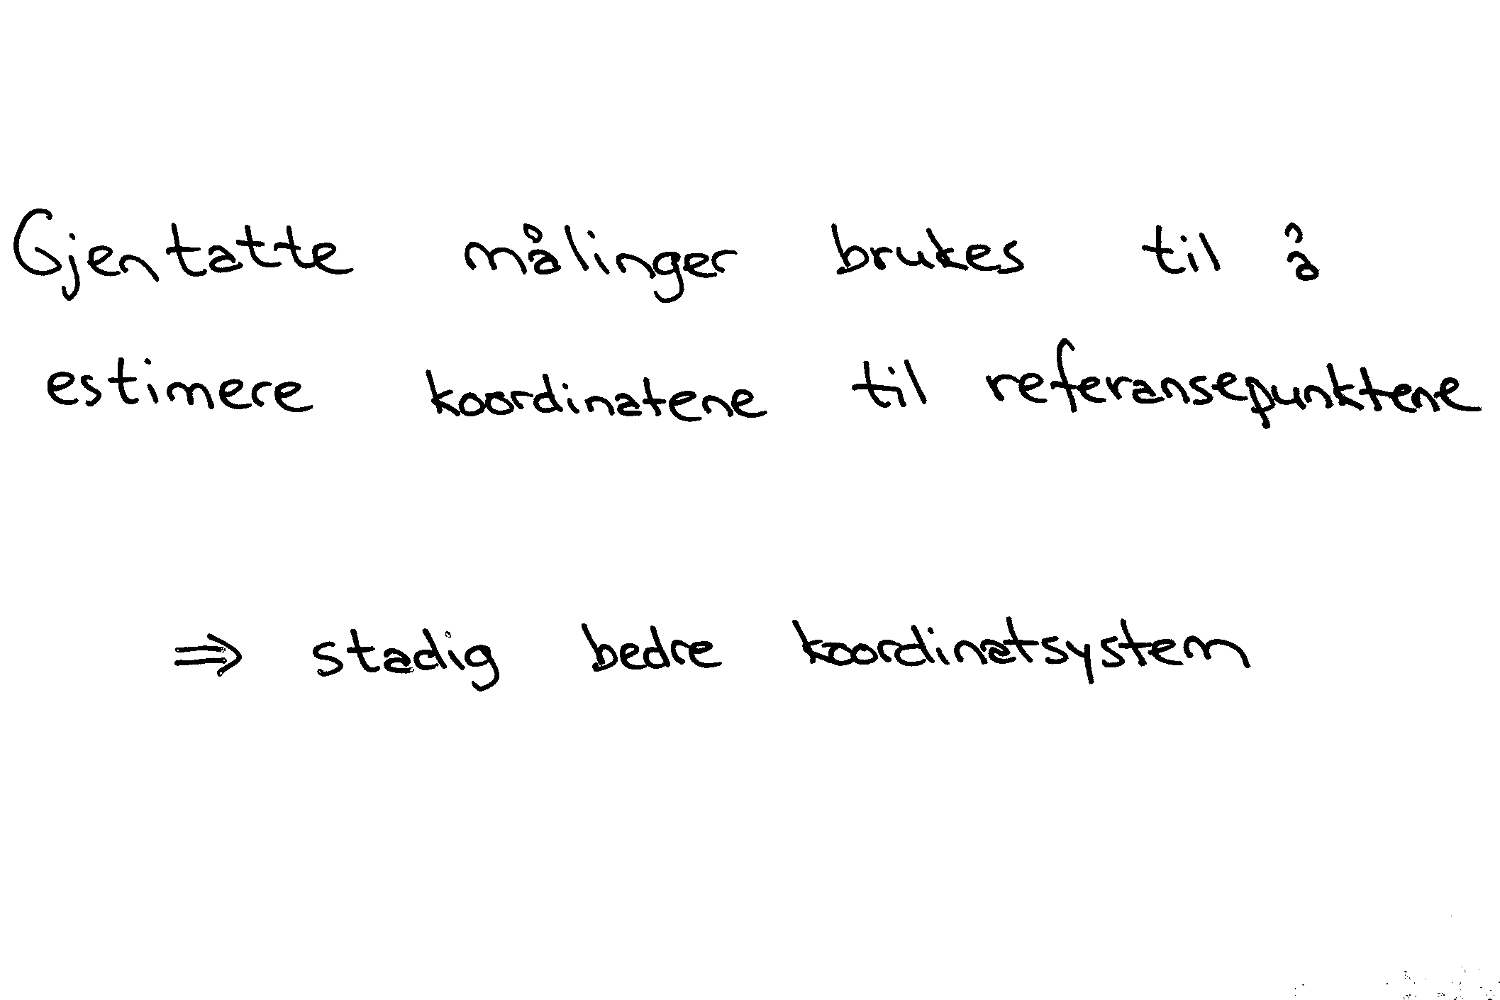 Gjentatte målinger brukes til å
estimere koordinatene til referansepunktene
⇒ stadig bedre koordinatsystem